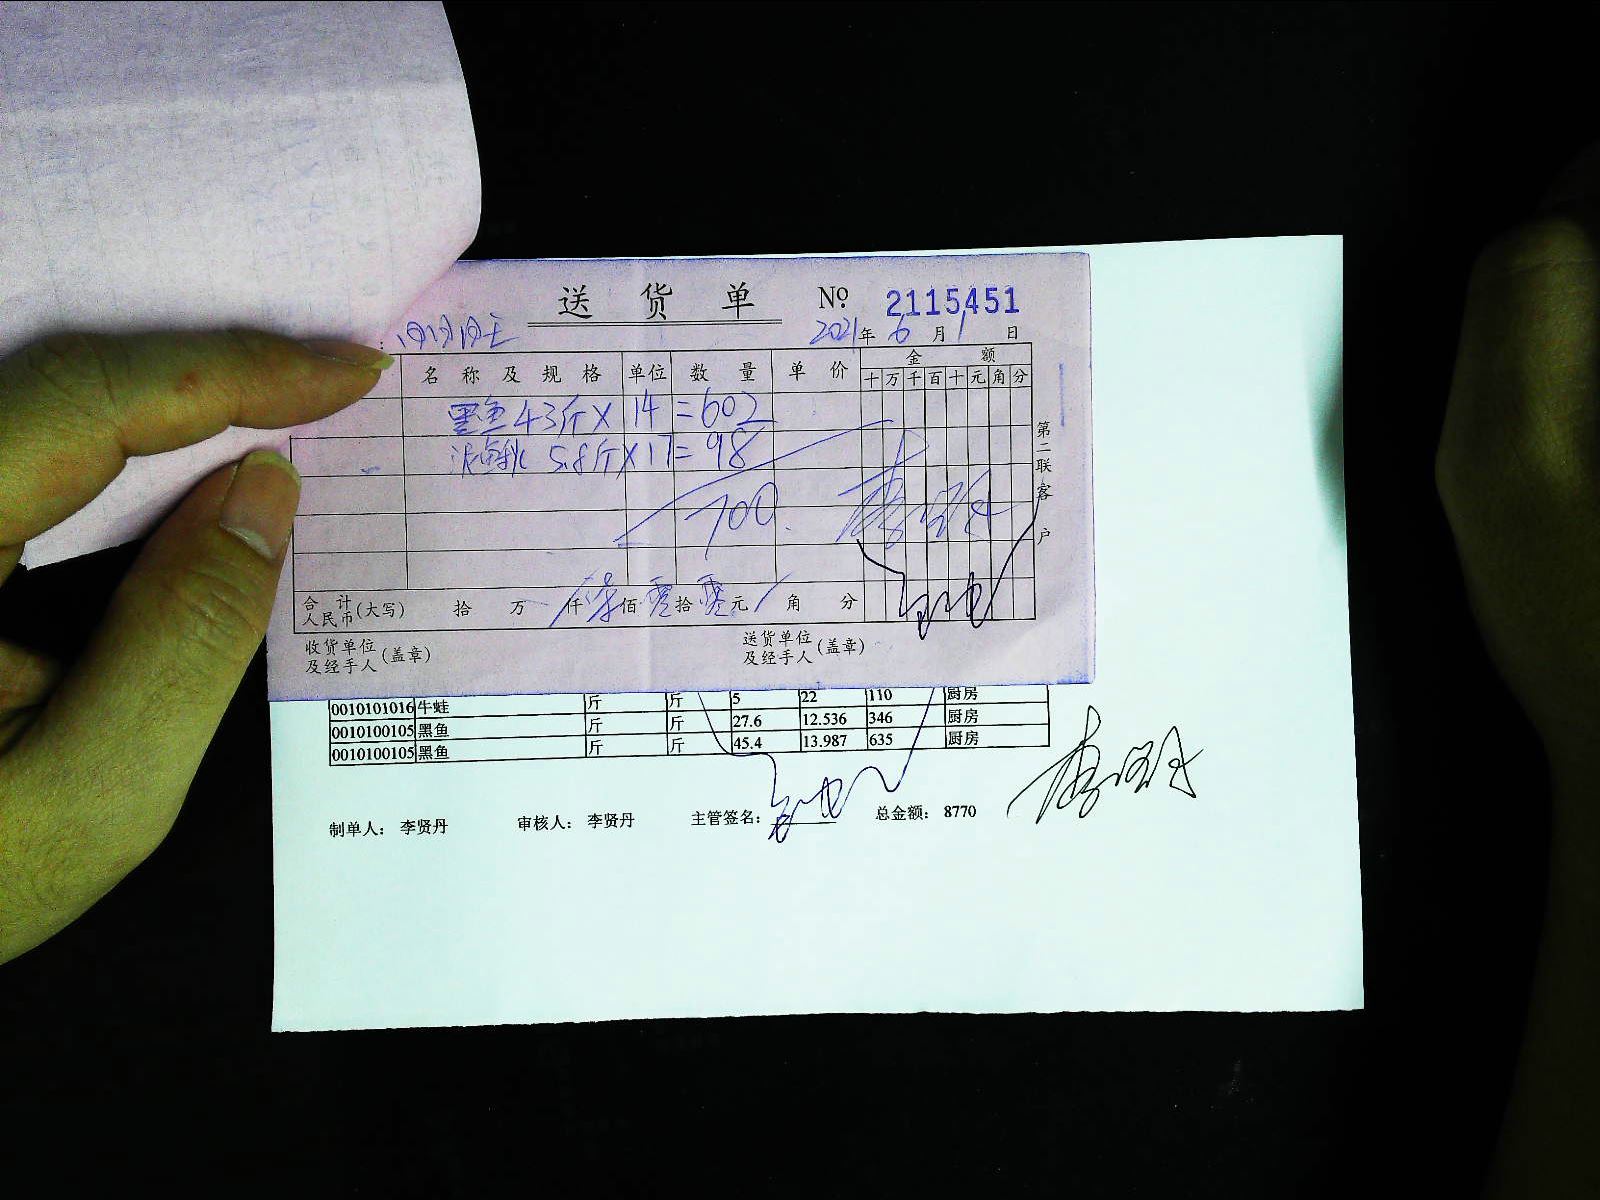 送货单 № 2115451
2021年6月1日
金额
名称及规格 单位 数量 单价 十万千百十元角分
黑鱼43斤×14=602
泥鳅 5.8斤×17=98
700.
第二联客户
合计人民币(大写) 拾 万 仟 柒佰零拾零元 角 分
收货单位及经手人(盖章) 送货单位及经手人(盖章)
0010101016 牛蛙 斤 斤 5 22 110 厨房
0010100105 黑鱼 斤 斤 27.6 12.536 346 厨房
0010100105 黑鱼 斤 斤 45.4 13.987 635 厨房
制单人: 李贤丹 审核人: 李贤丹 主管签名: 总金额: 8770